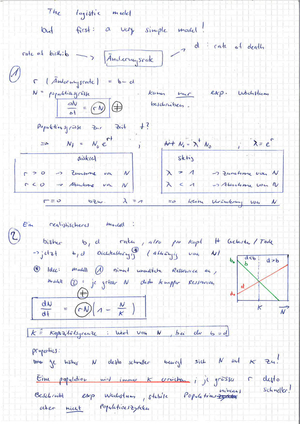 The logistic model
but first: a very simple model!
rate of birth b → Änderungsrate ← d rate of death
① r (Änderungsrate) = b-d
N = populationsgrösse kann nur exp. Wachstum
dN/dt = rN beschreiben.
Populationsgrösse zur Zeit t?
⇒ Nt = N0 e^rt ; Nt = N0 λ^t ; λ = e^r
stetig
r > 0 → Zunahme von N λ > 1 → Zunahme von N
r < 0 → Abnahme von N λ < 1 → Abnahme von N
r = 0 bzw. λ = 1 ⇒ keine Veränderung von N
② Ein realistischeres Modell:
bisher b, d raten, also pro Kopf # Geburten / Tode
→ jetzt b, d
Idee: macht ① einmal unendliche Ressource an,
macht ②: je grösser N desto knapper Ressourcen
dN/dt = rN (1 - N/K)
K = Kapazitätsgrenze: Wert von N, bei dem b = d
b d<b d>b
d
K N
properties:
je höher N desto schneller N auf K zu!
Eine population wird immer K erreichen; je grösser r desto schneller!
Beschreibt exp Wachstum, stabile Populationsgrössen
aber nicht Populationszyklen